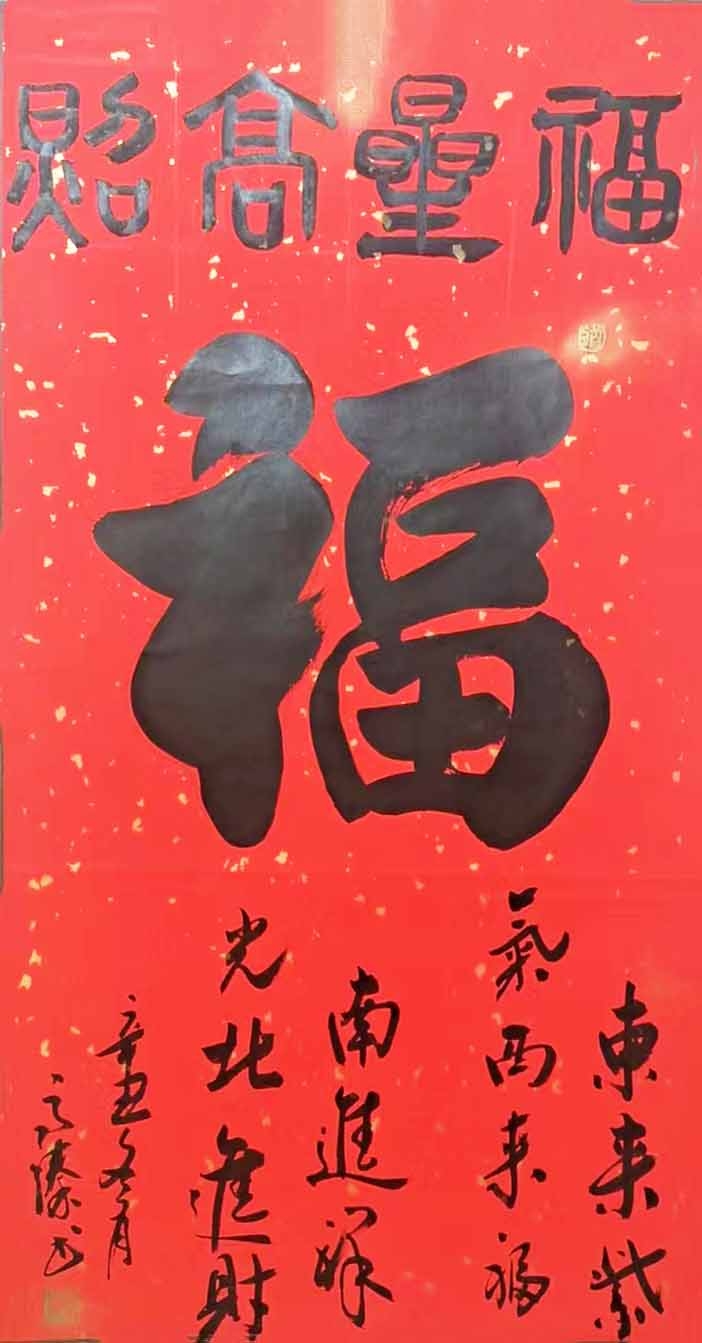 福星高照
福
東来紫
氣西来福
南進祥
光北進財
辛丑冬月